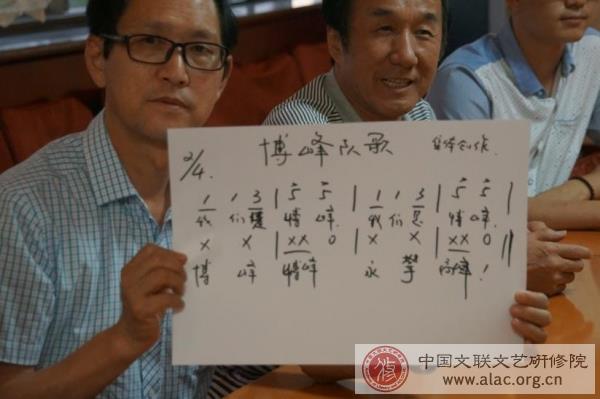 博峰队歌 集体创作.
2/4.
1 1 3 | 5 5 | 1 1 3 | 5 5 |
我们是 博峰 我们是 博峰
X X | XX 0 | X X | XX 0 ||
博峰 博峰 永攀 高峰！
中国文联文艺研修院
www.alac.org.cn